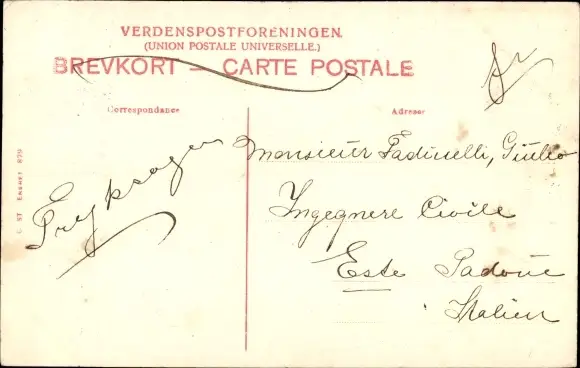 VERDENSPOSTFORENINGEN.
(UNION POSTALE UNIVERSELLE.)
BREVKORT — CARTE POSTALE
Correspondance
Adresse
Tryksager
Monsieur Fadinelli, Giulio
Ingegnere Civile
Este Padoue
Italien
ST. ENERET 879